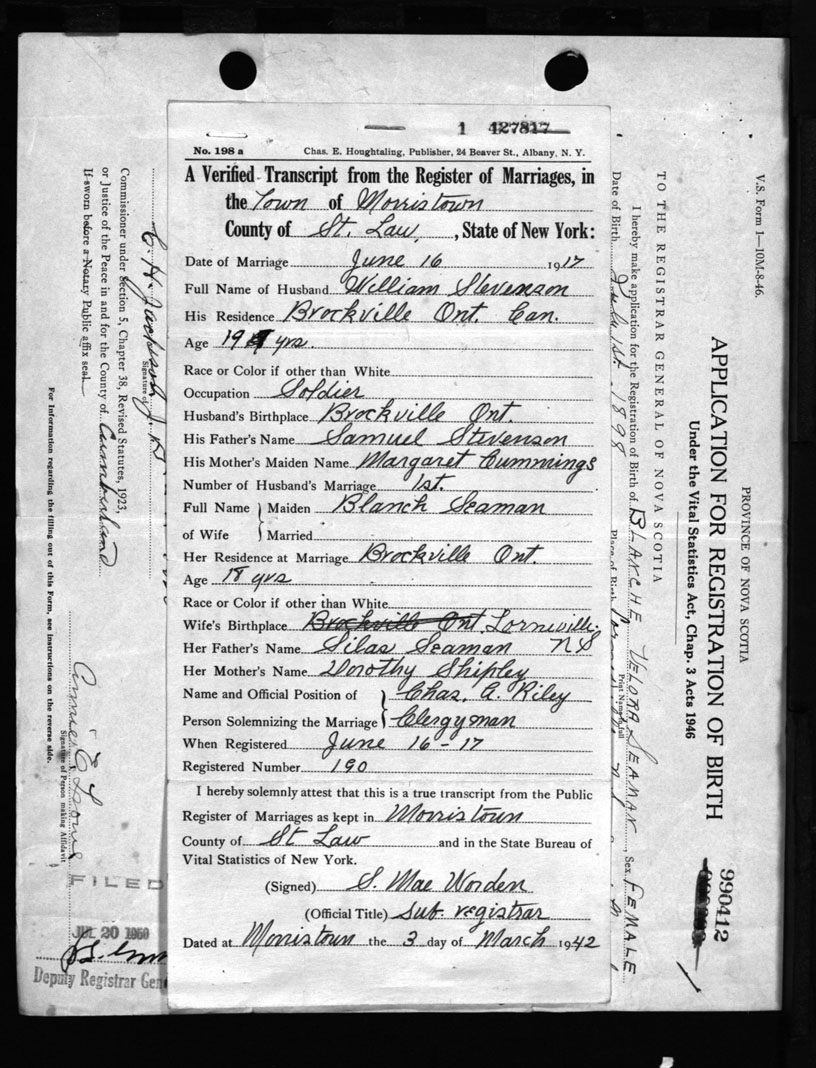 1 427817
No. 198 a Chas. E. Houghtaling, Publisher, 24 Beaver St., Albany, N. Y.
A Verified Transcript from the Register of Marriages, in
the Town of Morristown
County of St. Law, , State of New York:
Date of Marriage June 16 1917
Full Name of Husband William Stevenson
His Residence Brockville Ont. Can.
Age 19 yrs.
Race or Color if other than White
Occupation Soldier
Husband's Birthplace Brockville Ont.
His Father's Name Samuel Stevenson
His Mother's Maiden Name Margaret Cummings
Number of Husband's Marriage 1st.
Full Name } Maiden Blanch Seaman
of Wife Married
Her Residence at Marriage Brockville Ont.
Age 18 yrs
Race or Color if other than White
Wife's Birthplace Brockville Ont Lorneville.
Her Father's Name Silas Seaman N S
Her Mother's Name Dorothy Shipley
Name and Official Position of } Chas. A. Riley
Person Solemnizing the Marriage Clergyman
When Registered June 16-17
Registered Number 190
I hereby solemnly attest that this is a true transcript from the Public
Register of Marriages as kept in Morristown
County of St Law and in the State Bureau of
Vital Statistics of New York.
(Signed) S. Mae Worden
(Official Title) Sub. registrar
Dated at Morristown the 3 day of March 1942
V.S. Form 1—10M-8-46.
PROVINCE OF NOVA SCOTIA
APPLICATION FOR REGISTRATION OF BIRTH 990412
Under the Vital Statistics Act, Chap. 3 Acts 1946
TO THE REGISTRAR GENERAL OF NOVA SCOTIA
I hereby make application for the Registration of Birth of BLANCHE VELORA SEAMAN, Sex FEMALE
Print Name in full
Date of Birth 1st. 1898 Place of Birth
C H Jackson J.P.
Signature of
Commissioner under Section 5, Chapter 38, Revised Statutes, 1923,
or Justice of the Peace in and for the County of Cumberland
If sworn before a Notary Public affix seal
For Information regarding the filling out of this Form, see instructions on the reverse side.
Annie E
Signature of Person making Affidavit
FILED
JUL 20 1960
Deputy Registrar Gen